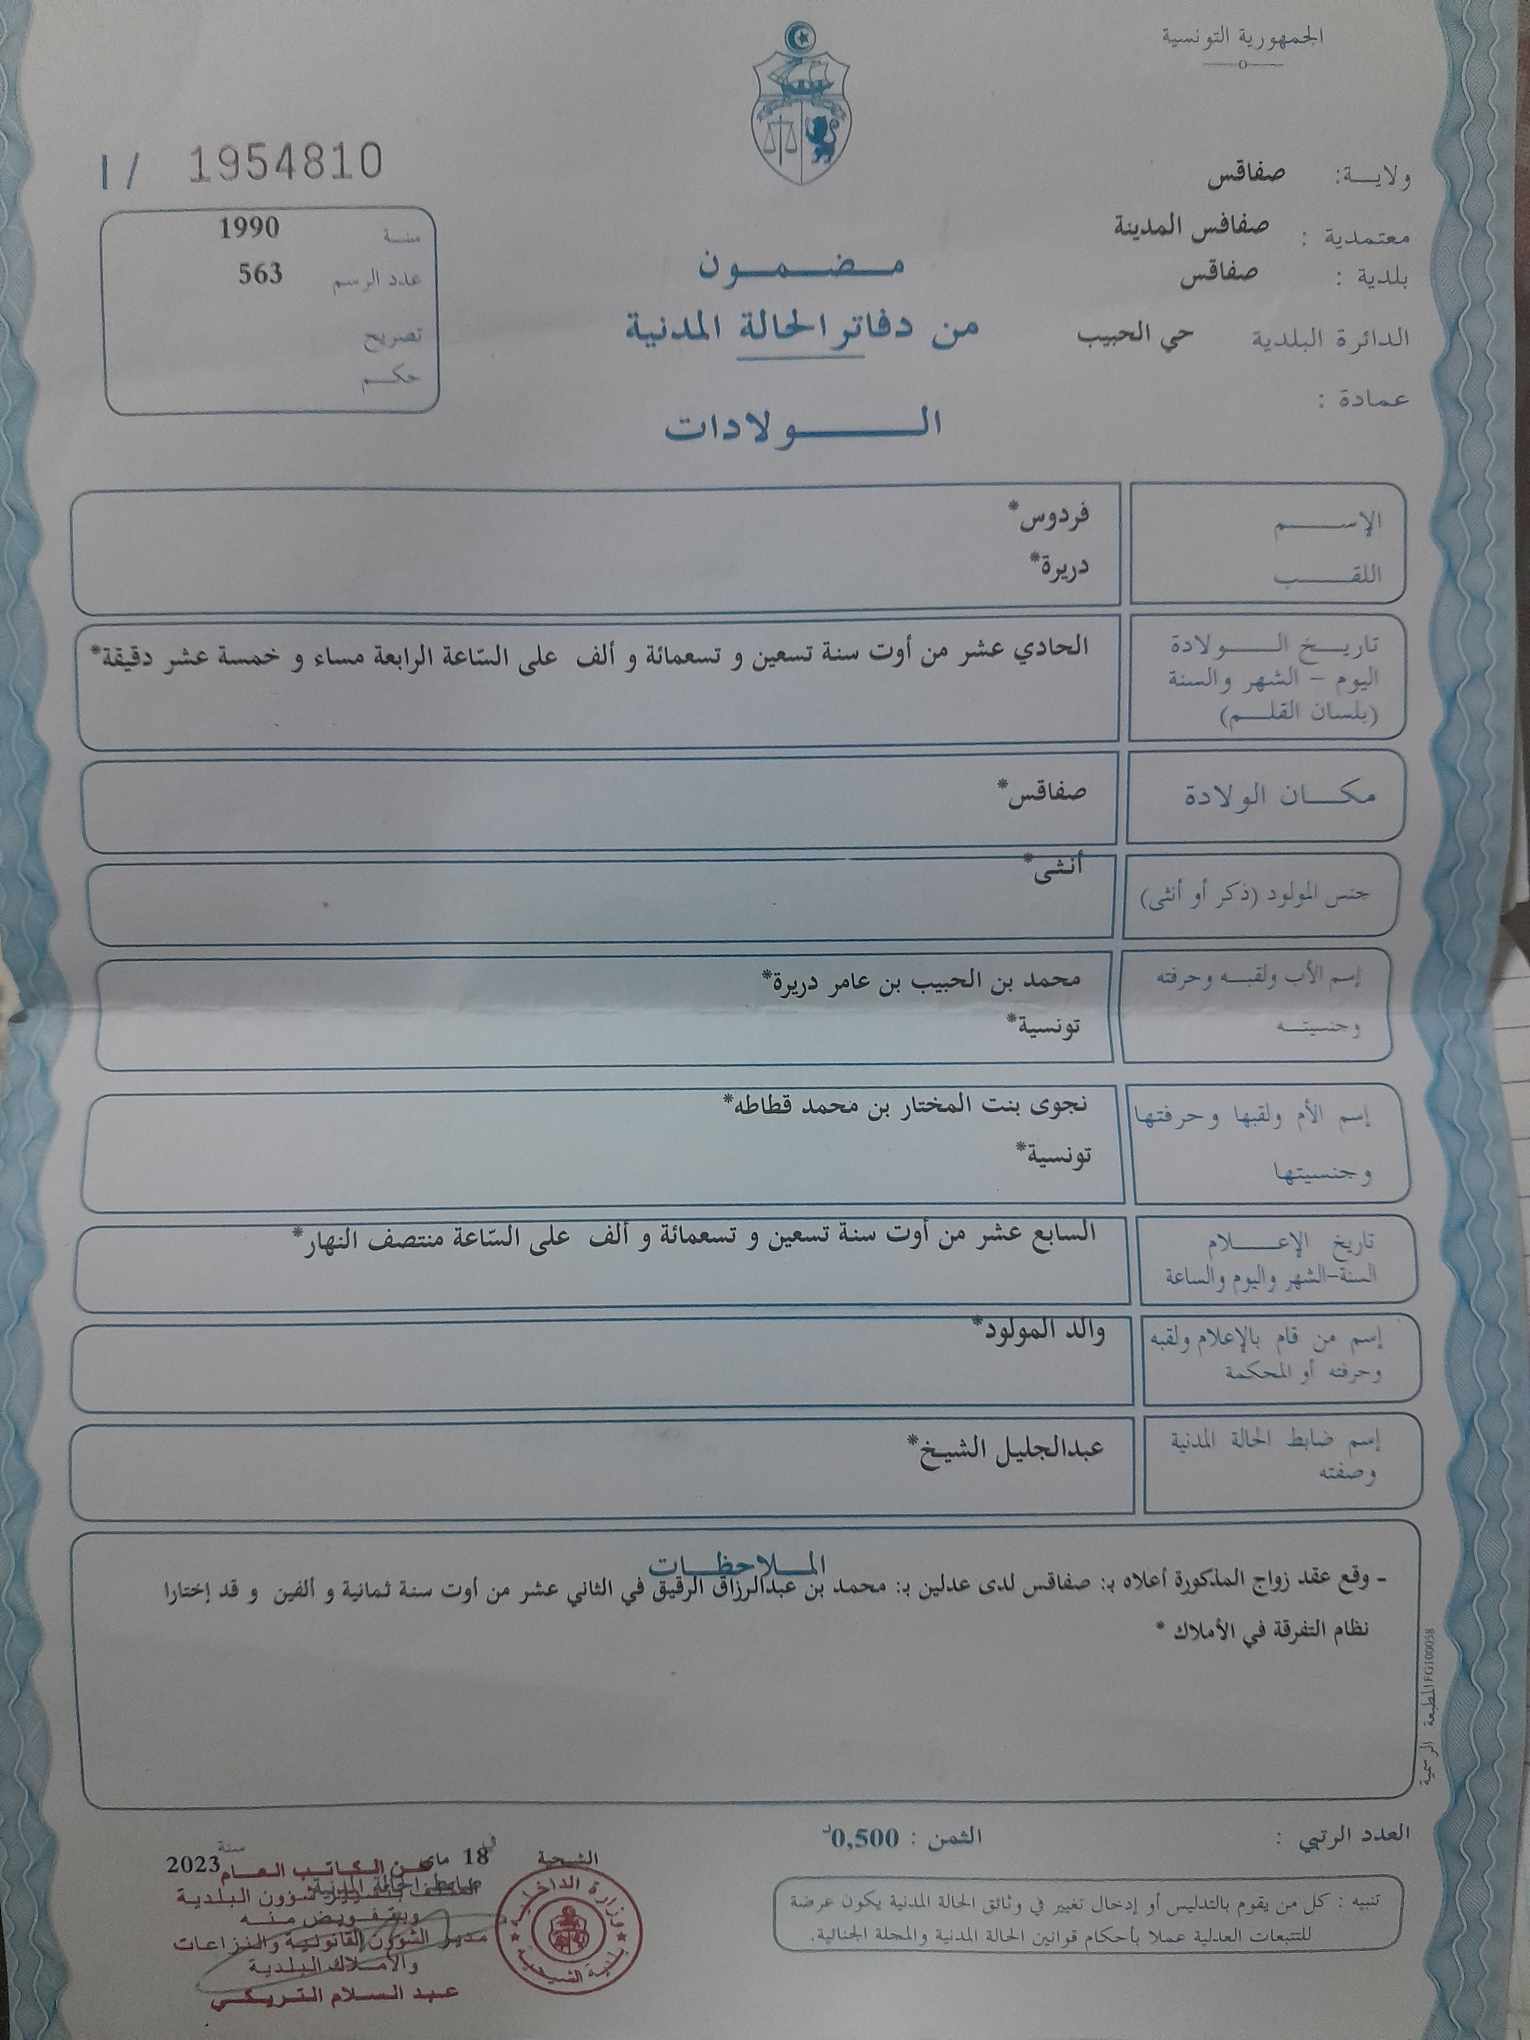 الجمهورية التونسية
ولايــة: صفاقس
معتمدية : صفاقس المدينة
بلدية : صفاقس
الدائرة البلدية حي الحبيب
عمادة :
1954810 / I
سنة 1990
عدد الرسم 563
تصريح
حكم
مضمون
من دفاتر الحالة المدنية
الولادات
الإسم فردوس*
اللقب دريرة*
تاريخ الولادة
اليوم - الشهر والسنة
(بلسان القلم)
الحادي عشر من أوت سنة تسعين و تسعمائة و ألف على السّاعة الرابعة مساء و خمسة عشر دقيقة*
مكان الولادة صفاقس*
جنس المولود (ذكر أو أنثى) أنثى*
إسم الأب ولقبه وحرفته محمد بن الحبيب بن عامر دريرة*
وجنسيته تونسية*
إسم الأم ولقبها وحرفتها نجوى بنت المختار بن محمد قطاطه*
وجنسيتها تونسية*
تاريخ الإعلام
السنة-الشهر واليوم والساعة
السابع عشر من أوت سنة تسعين و تسعمائة و ألف على السّاعة منتصف النهار*
إسم من قام بالإعلام ولقبه
وحرفته أو المحكمة
والد المولود*
إسم ضابط الحالة المدنية
وصفته
عبدالجليل الشيخ*
الملاحظات
- وقع عقد زواج المذكورة أعلاه بـ: صفاقس لدى عدلين بـ: محمد بن عبدالرزاق الرقيق في الثاني عشر من أوت سنة ثمانية و ألفين و قد إختارا
نظام التفرقة في الأملاك *
المطبعة الرسمية FG100058
العدد الرتبي :
الثمن : 0,500د
تنبيه : كل من يقوم بالتدليس أو إدخال تغيير في وثائق الحالة المدنية يكون عرضة
للتتبعات العدلية عملا بأحكام قوانين الحالة المدنية والمجلة الجنائية.
الشيحية في 18 ماي سنة 2023
ضابط الحالة المدنية
عن الكاتب العام
المكلف بتسيير شؤون البلدية
وبتفويض منه
مدير الشؤون القانونية والنزاعات
والأملاك البلدية
عبد السلام التريكي
وزارة الداخلية
بلدية الشيحية